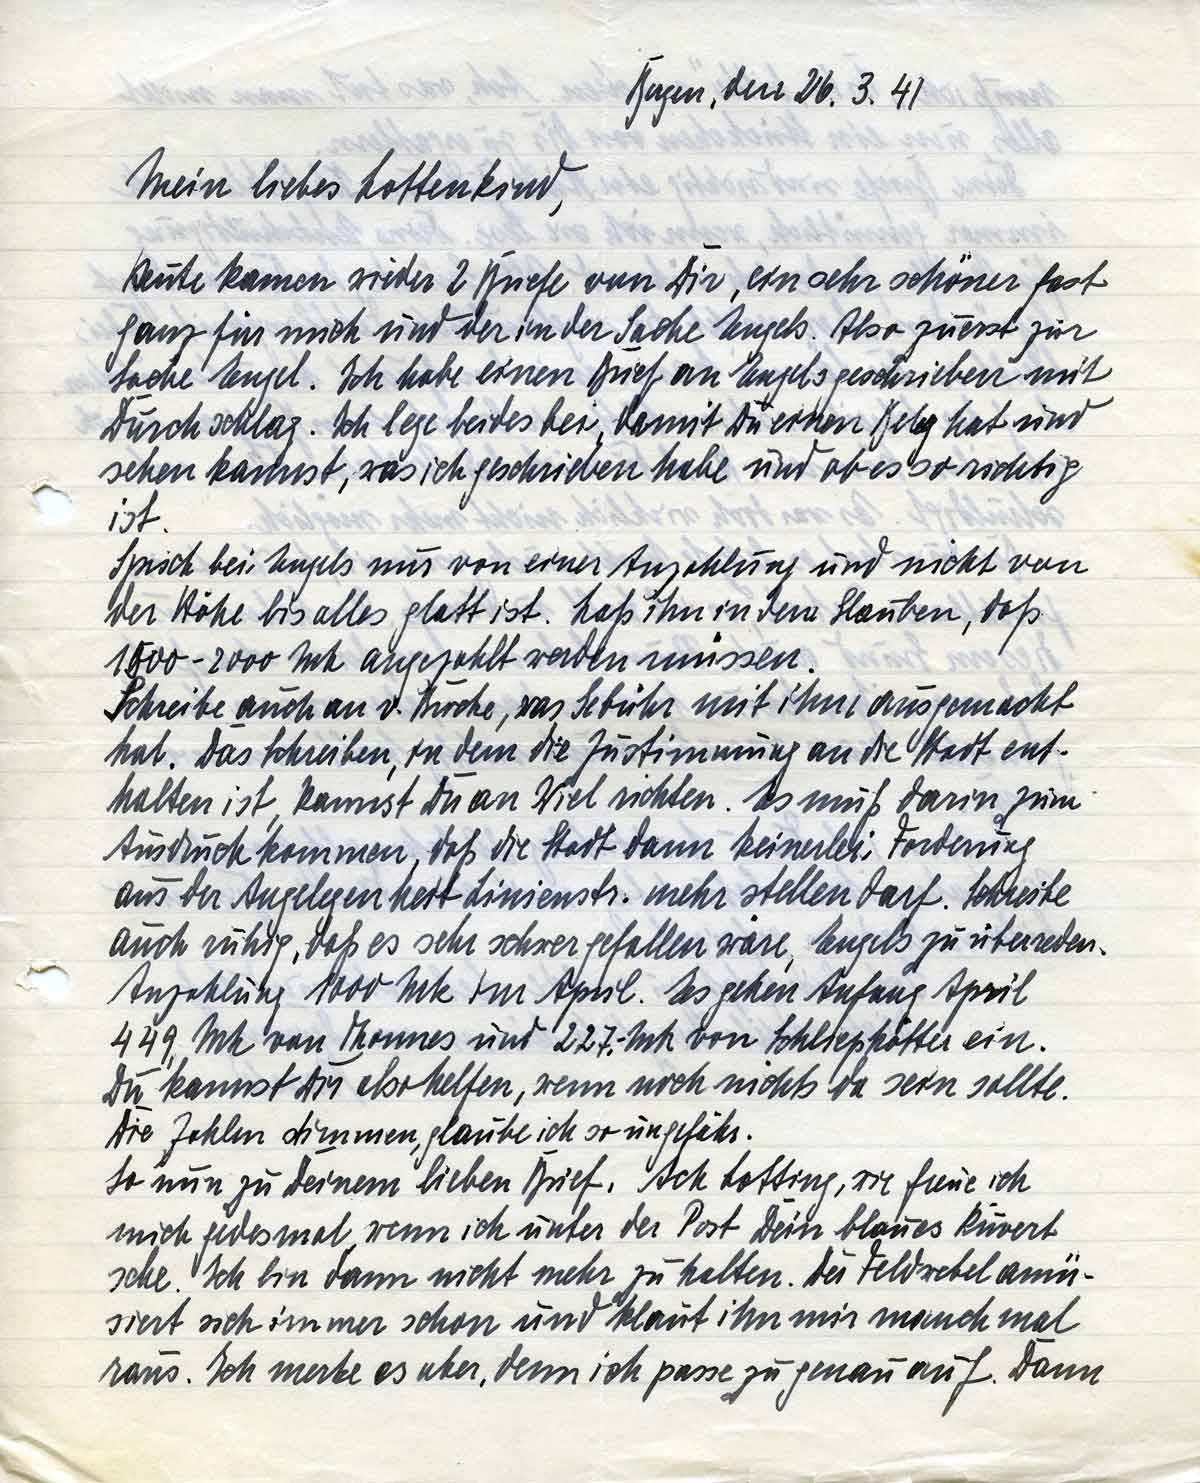 Hagen, den 26. 3. 41
Mein liebes Lottenkind,
Heute kamen wieder 2 Briefe von Dir, ein sehr schöner fast
ganz für mich und der in der Sache Engels. Also zuerst zur
Sache Engel. Ich habe einen Brief an Engels geschrieben mit
Durchschlag. Ich lege beides bei, damit Du einen Beleg hat und
sehen kannst, was ich geschrieben habe und ob es so richtig
ist.
Sprich bei Engels nur von einer Anzahlung und nicht von
der Höhe bis alles glatt ist. Laß ihn in dem Glauben, daß
1500-2000 Mk angezahlt werden müssen.
Schreibe auch an v. was Gebühr mit ihm ausgemacht
hat. Das Schreiben, in dem die Zustimmung an die Stadt ent-
halten ist, kannst Du an Viel richten. Es muß darin zum
Ausdruck kommen, daß die Stadt dann keinerlei Forderung
aus der Angelegenheit Linienstr. mehr stellen darf. Schreibe
auch ruhig, daß es sehr schwer gefallen wäre, Engels zu überreden.
Anzahlung 1000 Mk im April. Es gehen Anfang April
449, Mk von Thonnes und 227.-Mk von Schliepkötter ein.
Du kannst Dir also helfen, wenn noch nichts da sein sollte.
Die Zahlen stimmen, glaube ich so ungefähr.
So nun zu Deinem lieben Brief. Ach Lotting, wie freue ich
mich jedesmal, wenn ich unter der Post Dein blaues Kuvert
sehe. Ich bin dann nicht mehr zu halten. Der Feldwebel amü-
siert sich immer schon und klaut ihn mir manchmal
raus. Ich merke es aber, denn ich passe zu genau auf. Dann